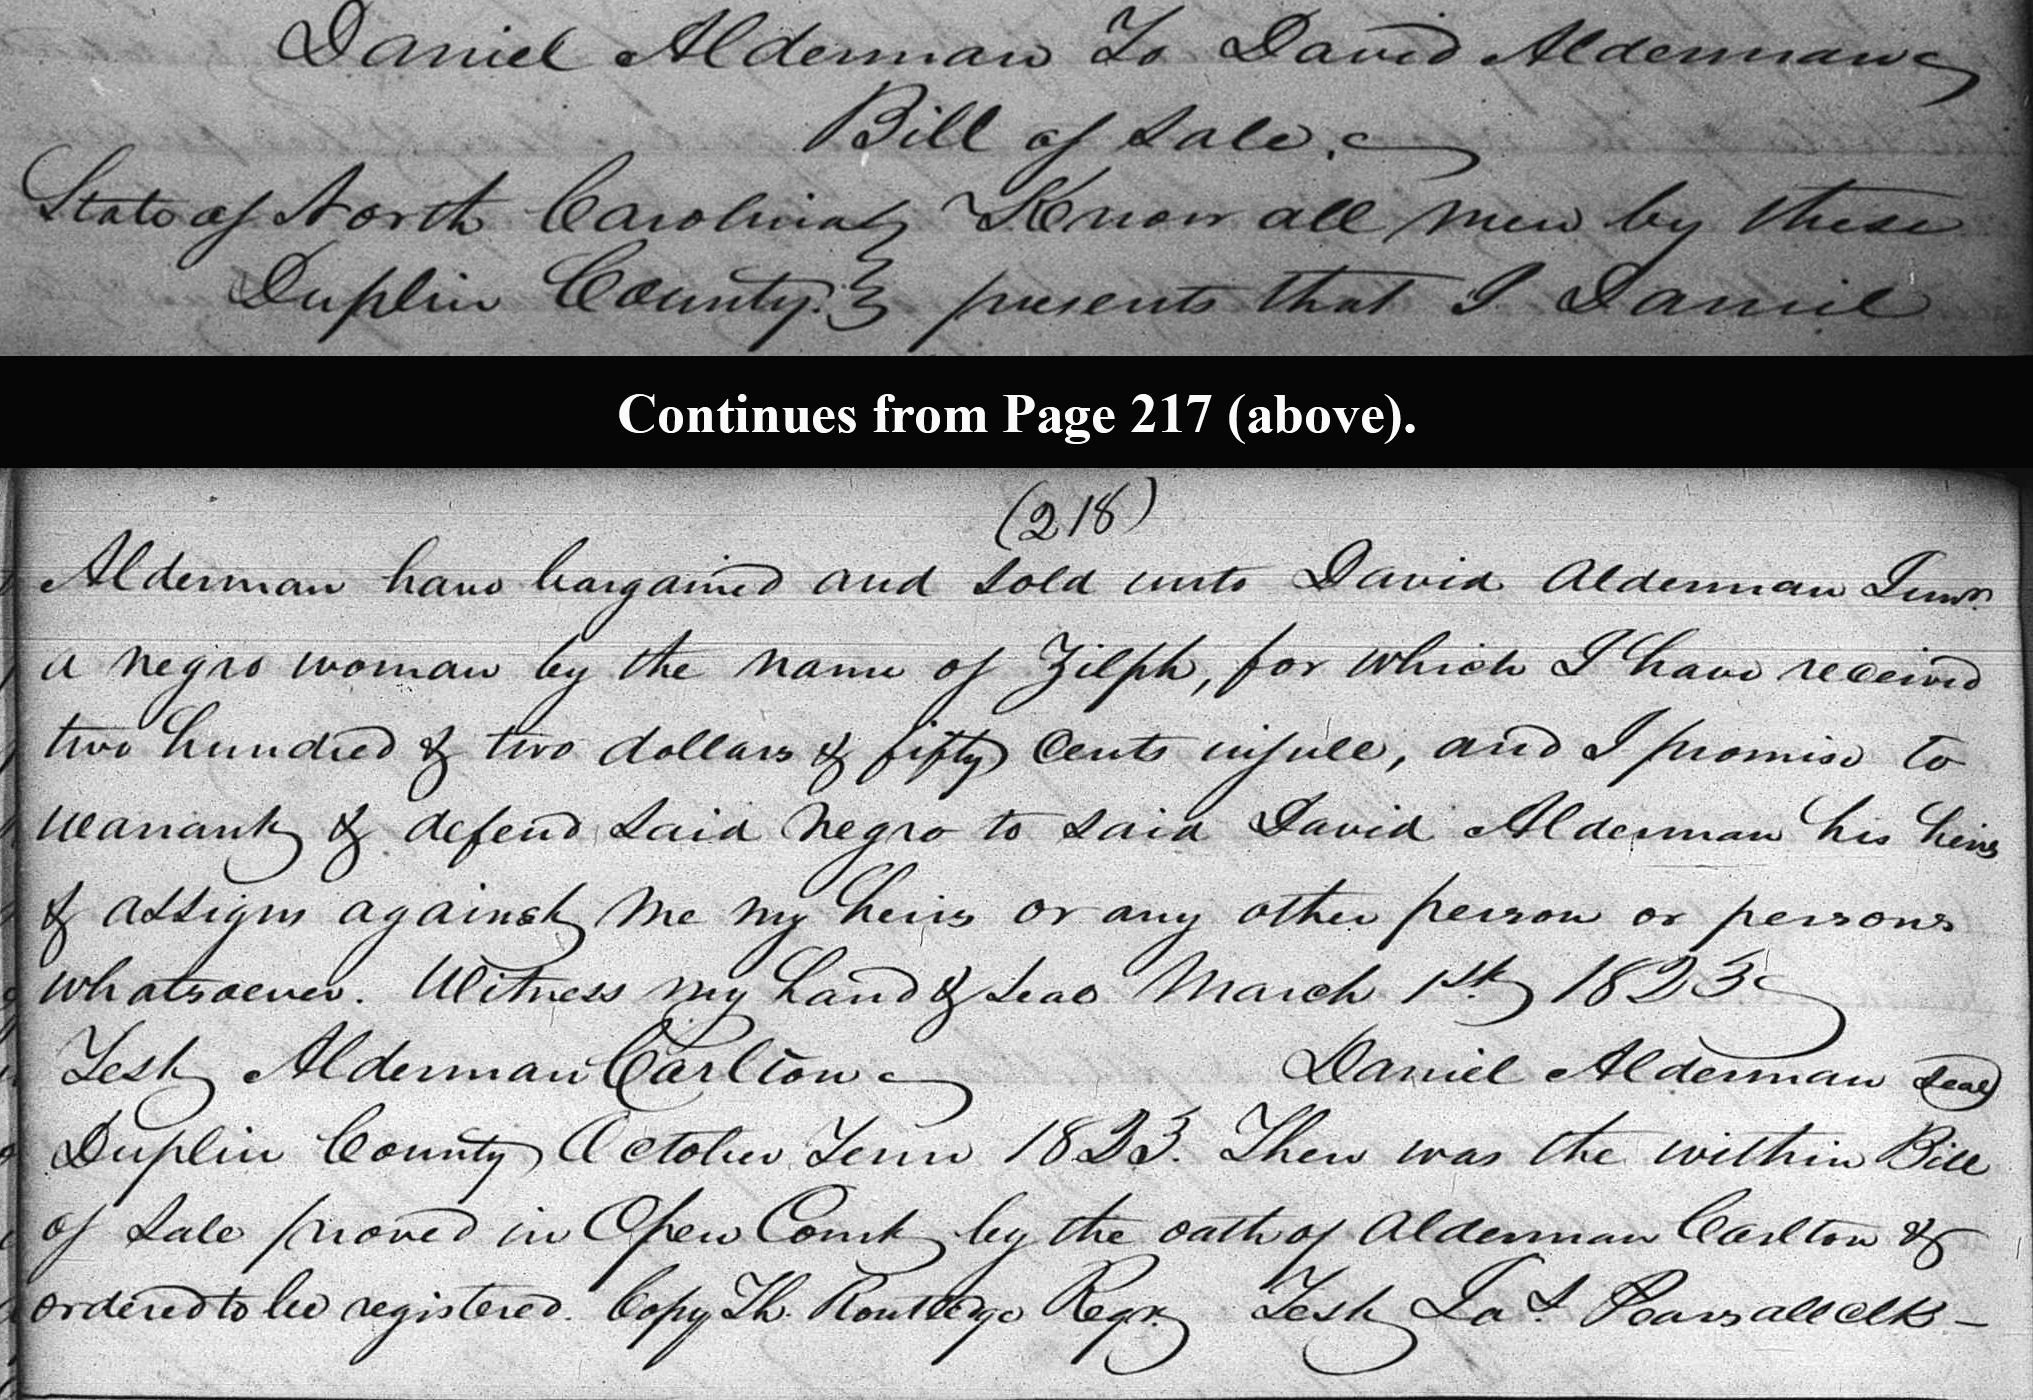 Daniel Alderman To David Alderman
Bill of Sale.
State of North Carolina } Know all men by these
Duplin County. } presents that I Daniel
Continues from Page 217 (above).
(218)
Alderman have bargained and sold unto David Alderman Junr.
a negro woman by the name of Zilph, for which I have received
two hundred & two dollars & fifty Cents in full, and I promise to
warrant & defend said negro to said David Alderman his heirs
& assigns against me my heirs or any other person or persons
whatsoever. Witness my hand & seal March 1st. 1823
Test Alderman Carlton Daniel Alderman Seal
Duplin County October Term 1823. Then was the within Bill
of Sale proved in Open Court by the oath of Alderman Carlton &
ordered to be registered. Copy Th. Routledge Regr. Test Jas. Pearsall clk -